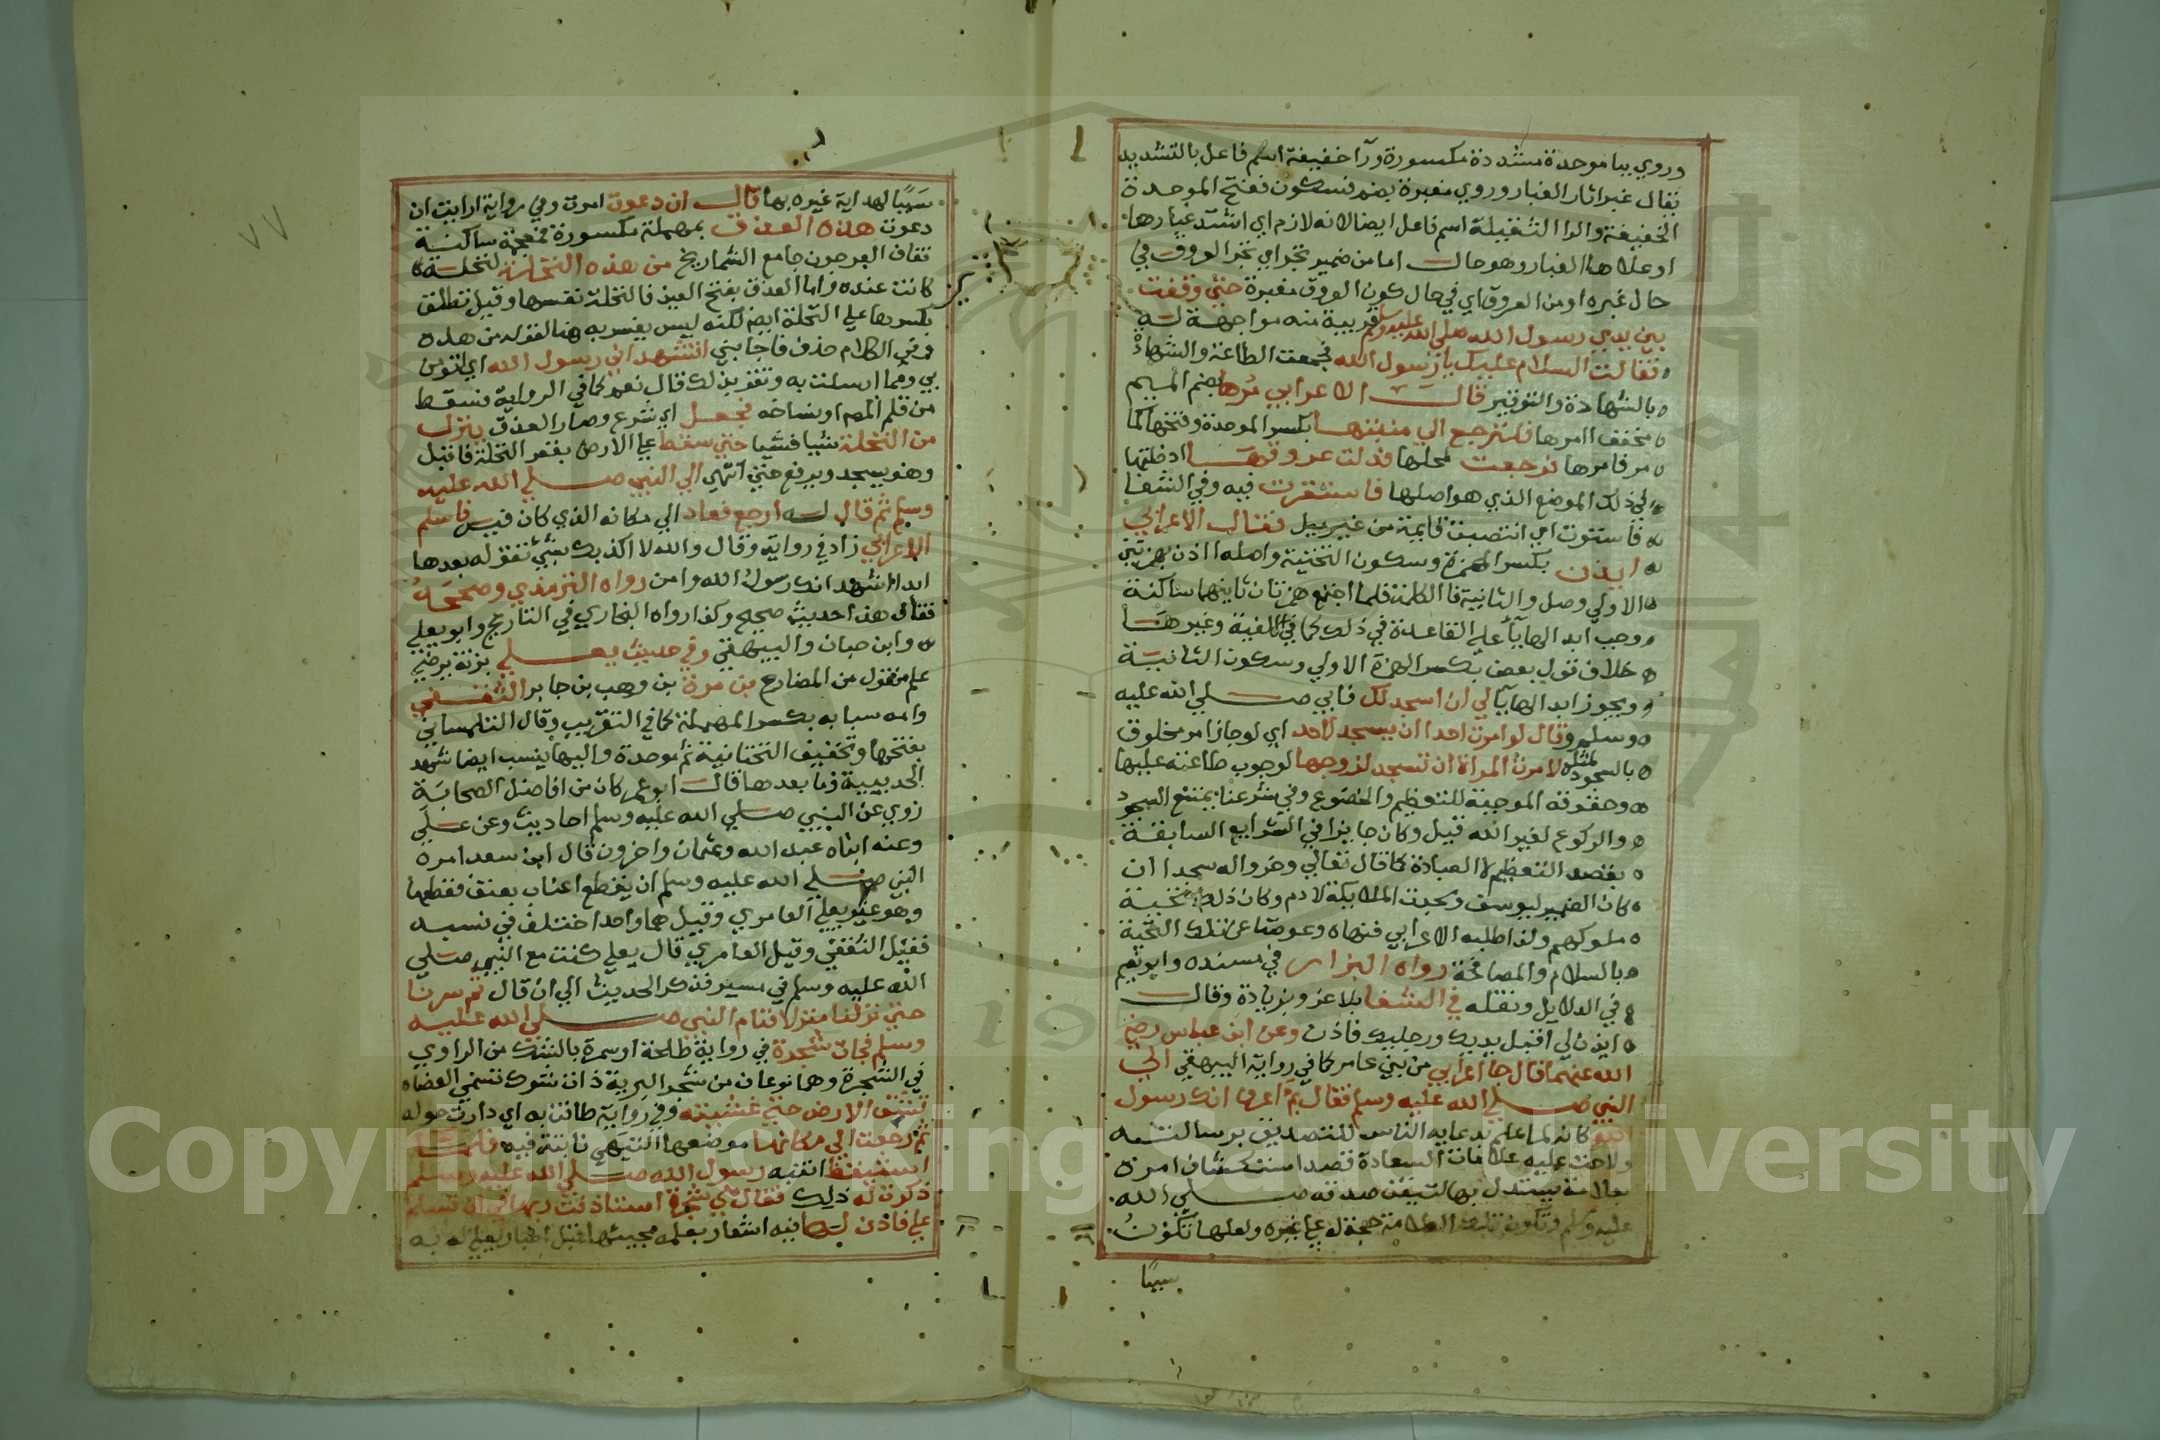 وروي بباموحدة مشددة مكسورة ورآ خفيفة اسم فاعل بالتشديد
يقال غبر اثار الغبار وروي مغبرة بضم فسكون ففتح الموحدة
الخفيفة والرا الثقيلة اسم فاعل ايضا لانه لازم اي اشتد غبارها
او علاها الغبار وهو حال اما من ضمير تجر اي تجر العروق في
حال غبره او من العروق اي في حال كون العروق مغبرة حتي وقفت
بين يدي رسول الله صلي الله عليه وسلم قريبة منه مواجهة له
فقالت السلام عليك يا رسول الله فجمعت الطاعة والشهادة
بالشهادة والتوقير قال الاعرابي مرها بضم الميم
مخفف اامرها فلترجع الي منبتها بكسر الموحدة وفتحها كما
مر فامرها فرجعت لمحلها فدلت عروقها ادخلتها
في ذلك الموضع الذي هو اصلها فاستقرت فيه وفي الشفا
فاستوت اي انتصبت قايمة من غير ميل فقال الاعرابي
ايذن بكسر الهمزة وسكون التحتية واصله ااذن بهمزتين
الاولي وصل والثانية فا الكلمة فلما اجتمع همزتان ثانيهما ساكنة
وجب ابدالها ياء علي القاعدة في ذلك كما في الالفية وغيرها
خلاف قول بعض بكسر الهمزة الاولي وسكون الثانية
ويجوز ابدالها يا لي ان اسجد لك فابي صلي الله عليه
وسلم وقال لو امرت احدا ان يسجد لاحد اي لو جاز امر مخلوق
بالسجود لمثله لامرت المراة ان تسجد لزوجها لوجوب طاعته عليها
وحقوقه الموجبة للتعظيم والخضوع وفي شرعنا يمتنع السجود
والركوع لغير الله قيل وكان جايزا في الشرايع السابقة
بقصد التعظيم لا العبادة كما قال تعالي وخروا له سجدا ان
كان الضمير ليوسف وسجدت الملايكة لادم وكان ذلك تحية
ملوكهم ولذا طلبه الاعرابي فنهاه وعوضنا عن تلك التحية
بالسلام والمصافحة رواه البزار في مسنده وابو نعيم
في الدلايل ونقله في الشفا بلا عزو بزيادة وقال
ايذن لي اقبل يديك ورجليك فاذن وعن ابن عباس رضي
الله عنهما قال جا اعرابي من بني عامر كما في رواية البيهقي الي
النبي صلي الله عليه وسلم فقال بم اعرف انك رسول
الله كانه لما علم بدعايه الناس للتصديق برسالته
ولاحت عليه علامات السعادة قصد استكشاف امره
بعلامة يستدل بها لتيقن صدقه صلي الله
عليه وسلم وتكون تلك العلامة حجة له علي غيره ولعلها تكون
سببا
سببا لهداية غيره بها قال ان دعوت امرت وفي رواية ارايت ان
دعوت هذه العذق بمهملة مكسورة فمعجمة ساكنة
فقاف العرجون جامع الشماريخ من هذه النخلة لنخلة
كانت عنده واما العذق بفتح العين فالنخلة نفسها وقيل تطلق
بكسرها علي النخلة ايضا لكنه ليس يفسر به هنا لقوله من هذه
وفي الكلام حذف فاجابني اتشهد اني رسول الله اي اتومن
بي وبما ارسلت به وتقر بذلك قال نعم كما في الرواية فسقط
من قلم المص او نساخه فجعل اي شرع وصار العذق ينزل
من النخلة شيا فشيا حتي سقط علي الارض بقعر النخلة فاقبل
وهو يسجد ويرفع حتي انتهي الي النبي صلي الله عليه
وسلم ثم قال له ارجع فعاد الي مكانه الذي كان فيه فاسلم
الاعرابي زاد في رواية وقال والله لا اكذبك بشيء تقوله بعدها
ابدا اشهد انك رسول الله وامن رواه الترمذي وصححه
فقال هذا حديث صحيح وكذا رواه البخاري في التاريخ وابو يعلي
وابن حبان والبيهقي وفي حديث يعلي بزنة يرضي
علم منقول من المضارع بن مرة بن وهب بن جابر الثقفي
وامه سبابه بكسر المهملة كما في التقريب وقال التلمساني
بفتحها وتخفيف التحتانية ثم موحدة واليها ينسب ايضا شهد
الحديبية فما بعدها قال ابو عمر كان من افاضل الصحابة
روي عن النبي صلي الله عليه وسلم احاديث وعن علي
وعنه ابناه عبد الله وعثمان واخرون قال ابن سعد امره
النبي صلي الله عليه وسلم ان يقطع اعناب ثقيف فقطعها
وهو غير يعلي العامري وقيل هما واحد اختلف في نسبه
فقيل الثقفي وقيل العامري قال يعلي كنت مع النبي صلي
الله عليه وسلم في مسير فذكر الحديث الي ان قال ثم سرنا
حتي نزلنا منزلا فنام النبي صلي الله عليه
وسلم فجات شجرة في رواية طلحة او سمرة بالشك من الراوي
في الشجرة وهما نوعان من شجر البرية ذات شوك تسمي العضاه
تشق الارض حتي غشيته وفي رواية طافت به اي دارت حوله
ثم رجعت الي مكانها موضعها التي هي نابتة فيه فلما
استيقظ انتبه رسول الله صلي الله عليه وسلم
ذكرت له ذلك فقال هي شجرة استاذنت ربها في ان تسلم
علي فاذن لها فيه اشعار بعلمه مجيئها قبل اخبار يعلي له به
Copyright © King Saud University
1957